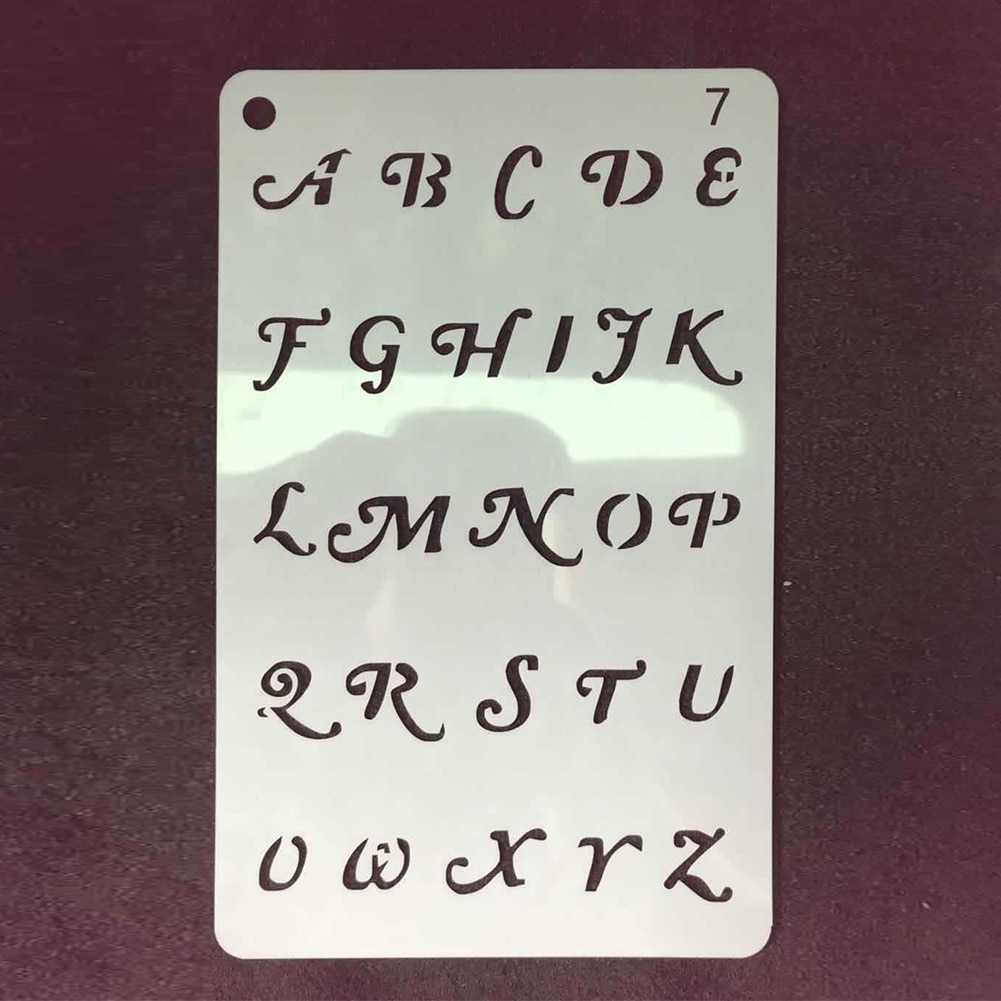 7
A B C D E
F G H I J K
L M N O P
Q R S T U
V W X Y Z